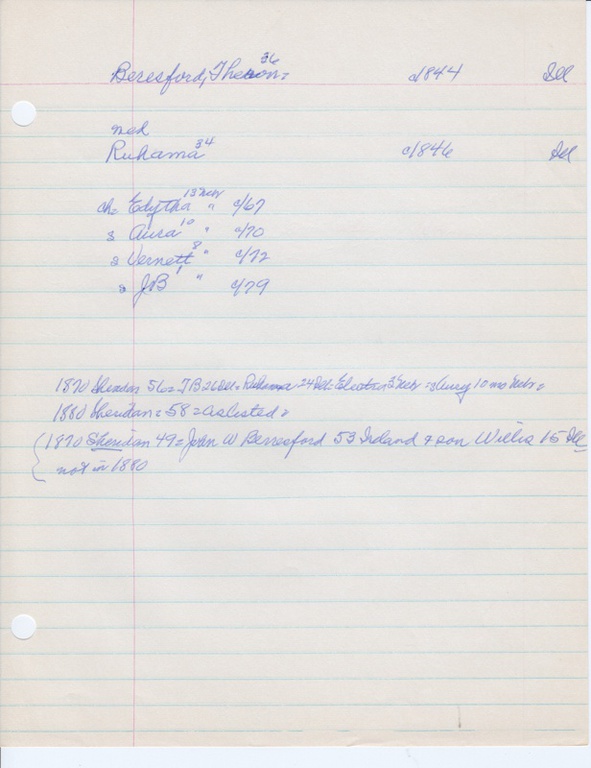 Beresford, Theron = 36 c/1844 Ill
med
Ruhama 34 c/1846 Ill
ch = Edytha 13 Nebr " c/67
s Aura 10 " c/70
s Vernett 8 " c/72
s JB 1 " c/79
1870 Sheridan 56 = TB 26 Ill = Ruhama 24 Ill = 3 Nebr = 10 mo Nebr =
1880 Sheridan = 58 = as listed =
(1870 Sheridan 49 = John W Berresford 53 Ireland & son Willis 15 Ill
not in 1880